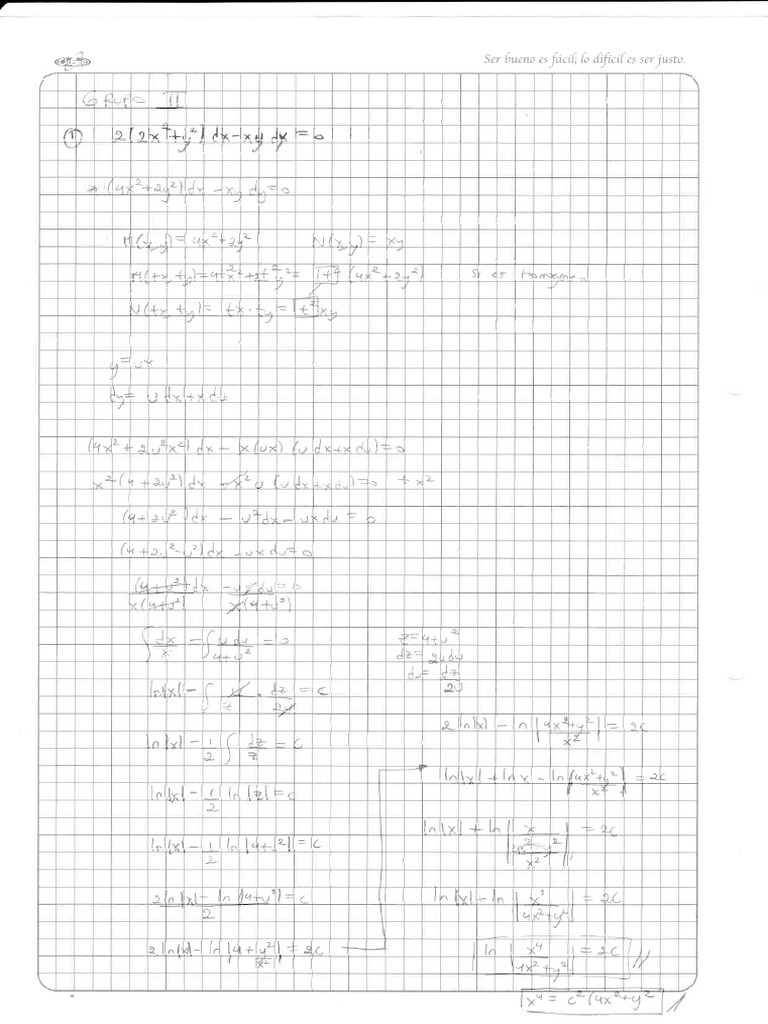 Ser bueno es fácil; lo difícil es ser justo.
Grupo II
① 2(2x²+y²)dx-xydy=0
(4x²+2y²)dx -xydy=0
M(x,y)=4x²+2y² N(x,y)=xy
M(tx,ty)=4t²x²+2t²y²= t² (4x²+2y²) Si es Homogenea
N(tx,ty)= tx·ty= t²xy
y=ux
dy= udx+xdu
(4x²+2u²x²)dx - x(ux)(udx+xdu)=0
x²(4+2u²)dx -x²u(udx+xdu)=0 ÷x²
(4+2u²)dx - u²dx-uxdu=0
(4+2u²-u²)dx-uxdu=0
(4+u²)dx/x(4+u²) -uxdu=0/x(4+u²)
∫dx/x -∫udu/4+u²=0
z=4+u²
dz=2udu
du=dz/2u
ln|x|-∫u/z·dz/2u=c
ln|x|-1/2∫dz/z=c
ln|x|-1/2 ln|z|=c
ln|x|-1/2 ln|4+u²|=c
2ln|x|-ln|4+u²|/2=c
2ln|x|-ln|4+y²/x²|=2c
2ln|x|-ln|4x²+y²/x²|=2c
ln|x|+lnx-ln|4x²+y²/x²|=2c
ln|x|+ln|x/4x²+y²/x²|=2c
ln|x|+ln|x³/4x²+y²|=2c
ln|x⁴/4x²+y²|=2c
x⁴=c²(4x²+y²